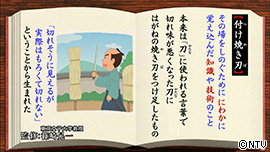 【付け焼き刃】
その場をしのぐために にわかに
覚え込んだ知識や技術のこと
本来は「刀」に使われる言葉で
切れ味が悪くなった刀に
はがねの焼き刀をつけ足したもの
「切れそうに見えるが
実際はもろくて切れない」
ということから生まれた
©NTV